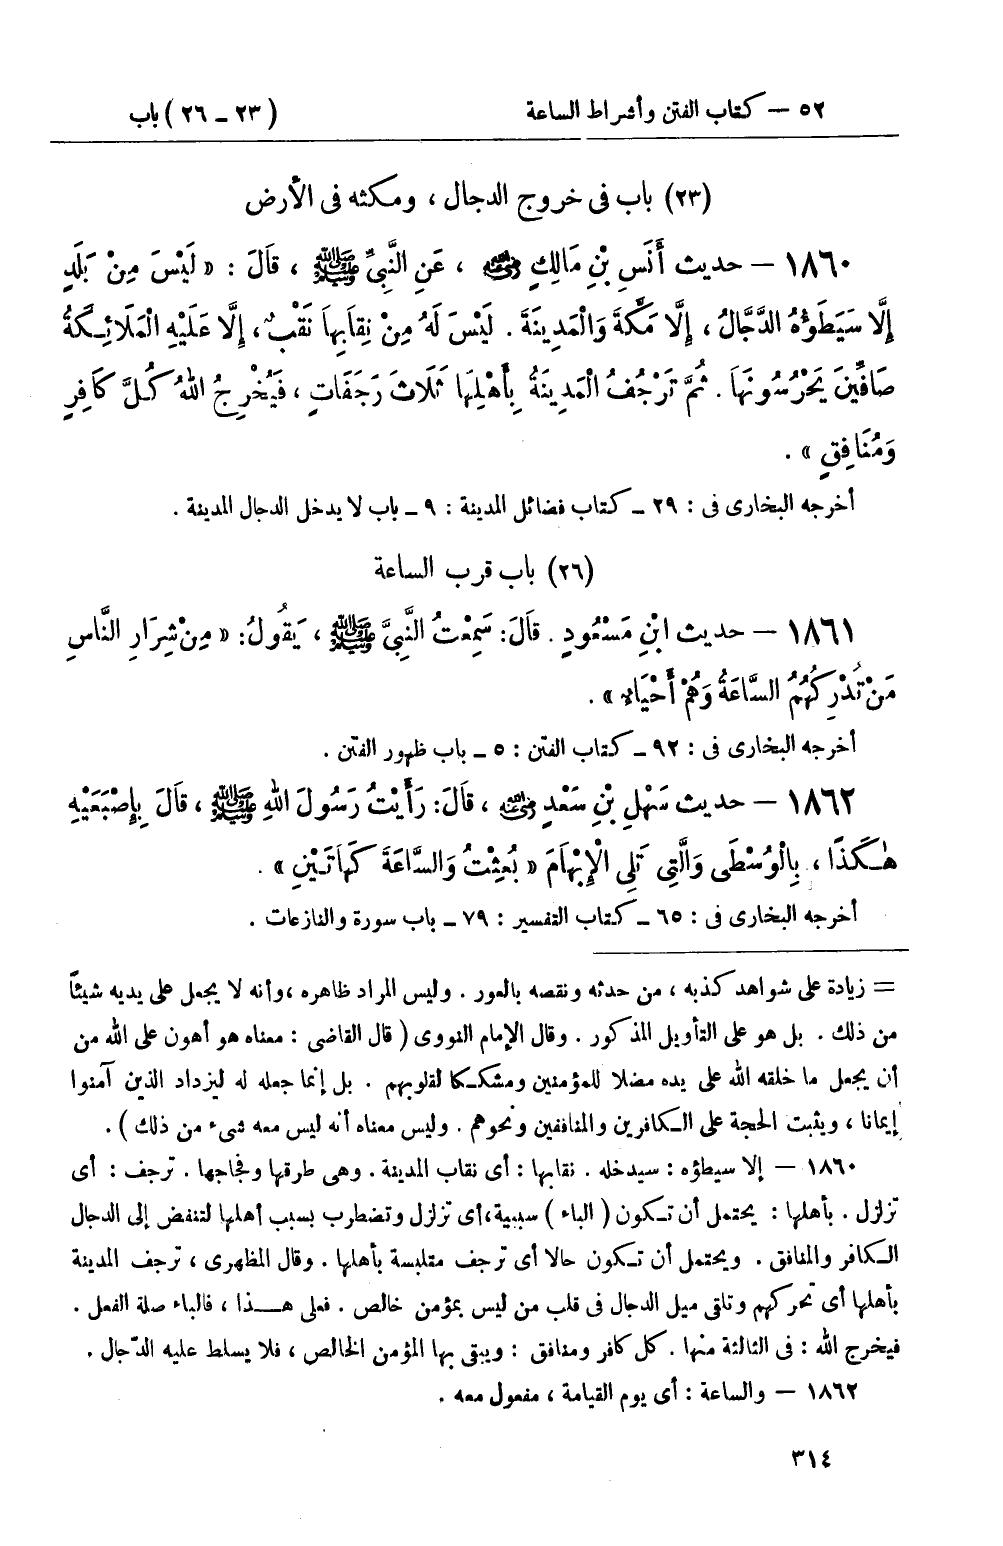 ٥٢ — كتاب الفتن وأشراط الساعة (٢٣ – ٢٦) باب
(٢٣) باب فى خروج الدجال ، ومكثه فى الأرض
١٨٦٠ — حديث أَنَسِ بْنِ مَالِكٍ رضي الله عنه ، عَنِ النَّبِيِّ ﷺ ، قَالَ : « لَيْسَ مِنْ بَلَدٍ
إِلَّا سَيَطَؤُهُ الدَّجَّالُ ، إِلَّا مَكَّةَ وَالْمَدِينَةَ . لَيْسَ لَهُ مِنْ نِقَابِهَا نَقْبٌ ، إِلَّا عَلَيْهِ الْمَلَائِكَةُ
صَافِّينَ يَحْرُسُونَهَا . ثُمَّ تَرْجُفُ الْمَدِينَةُ بِأَهْلِهَا ثَلَاثَ رَجَفَاتٍ ، فَيُخْرِجُ اللهُ كُلَّ كَافِرٍ
وَمُنَافِقٍ » .
أخرجه البخارى فى : ٢٩ – كتاب فضائل المدينة : ٩ – باب لا يدخل الدجال المدينة .
(٢٦) باب قرب الساعة
١٨٦١ — حديث ابْنِ مَسْعُودٍ . قَالَ: سَمِعْتُ النَّبِيَّ ﷺ ، يَقُولُ: « مِنْ شِرَارِ النَّاسِ
مَنْ تُدْرِكُهُمُ السَّاعَةُ وَهُمْ أَحْيَاءٌ » .
أخرجه البخارى فى : ٩٢ – كتاب الفتن : ٥ – باب ظهور الفتن .
١٨٦٢ — حديث سَهْلِ بْنِ سَعْدٍ رضي الله عنه ، قَالَ: رَأَيْتُ رَسُولَ اللهِ ﷺ ، قَالَ بِإِصْبَعَيْهِ
هٰكَذَا ، بِالْوُسْطَى وَالَّتِي تَلِى الْإِبْهَامَ « بُعِثْتُ وَالسَّاعَةَ كَهَاتَيْنِ » .
أخرجه البخارى فى : ٦٥ – كتاب التفسير : ٧٩ – باب سورة والنازعات .
= زيادة على شواهد كذبه ، من حدثه ونقصه بالعور . وليس المراد ظاهره ،وأنه لا يجعل على يديه شيئاً
من ذلك . بل هو على التأويل المذكور . وقال الإمام النووى ( قال القاضى : معناه هو أهون على الله من
أن يجعل ما خلقه الله على يده مضلا للمؤمنين ومشككا لقلوبهم . بل إنما جعله له ليزداد الذين آمنوا
إيمانا ، ويثبت الحجة على الكافرين والمنافقين ونحوهم . وليس معناه أنه ليس معه شىء من ذلك ) .
١٨٦٠ — إلا سيطؤه : سيدخله . نقابها : أى نقاب المدينة . وهى طرقها وفجاجها . ترجف : أى
تزلزل . بأهلها : يحتمل أن تكون ( الباء ) سببية،أى تزلزل وتضطرب بسبب أهلها لتنفض إلى الدجال
الكافر والمنافق . ويحتمل أن تكون حالا أى ترجف متلبسة بأهلها . وقال المظهرى ، ترجف المدينة
بأهلها أى تحركهم وتلقى ميل الدجال فى قلب من ليس بمؤمن خالص . فعلى هـذا ، فالباء صلة الفعل .
فيخرج الله : فى الثالثة منها . كل كافر ومنافق : ويبقى بها المؤمن الخالص ، فلا يسلط عليه الدّجال .
١٨٦٢ — والساعة : أى يوم القيامة ، مفعول معه .
٣١٤